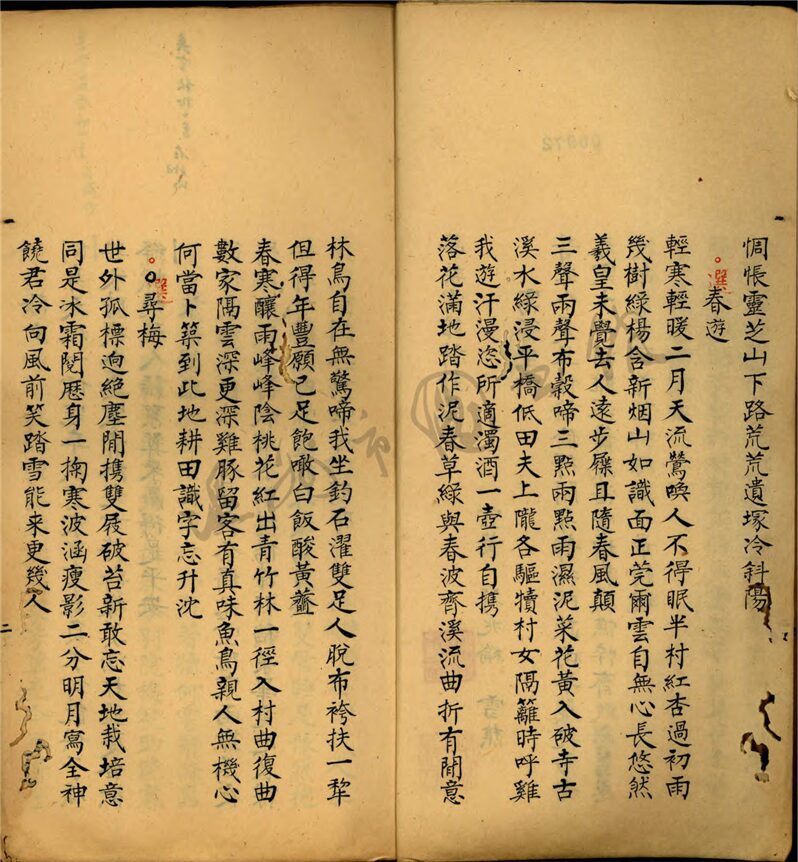 惆悵靈芝山下路荒荒遺塚冷斜陽
選
春遊
輕寒輕暖二月天流鶯喚人不得眠半村紅杏過初雨
幾樹綠楊含新烟山如識面正莞爾雲自無心長悠然
羲皇未覺去人遠步屧且隨春風顛
三聲兩聲布穀啼三點兩點雨濕泥菜花黃入破寺古
溪水綠浸平橋低田夫上隴各驅犢村女隔籬時呼雞
我遊汗漫恣所適濁酒一壺行自携
落花滿地踏作泥春草綠與春波齊溪流曲折有閒意
林鳥自在無驚啼我坐釣石濯雙足人脫布袴扶一犂
但得年豐願已足飽噉白飯酸黃虀
春寒釀雨峰峰陰桃花紅出青竹林一徑入村曲復曲
數家隔雲深更深雞豚留客有真味魚鳥親人無機心
何當卜築到此地耕田識字忘升沈
選
尋梅
世外孤標迥絕塵閒携雙屐破苔新敢忘天地栽培意
同是冰霜閱歷身一掬寒波涵瘦影二分明月寫全神
饒君冷向風前笑踏雪能来更幾人
二